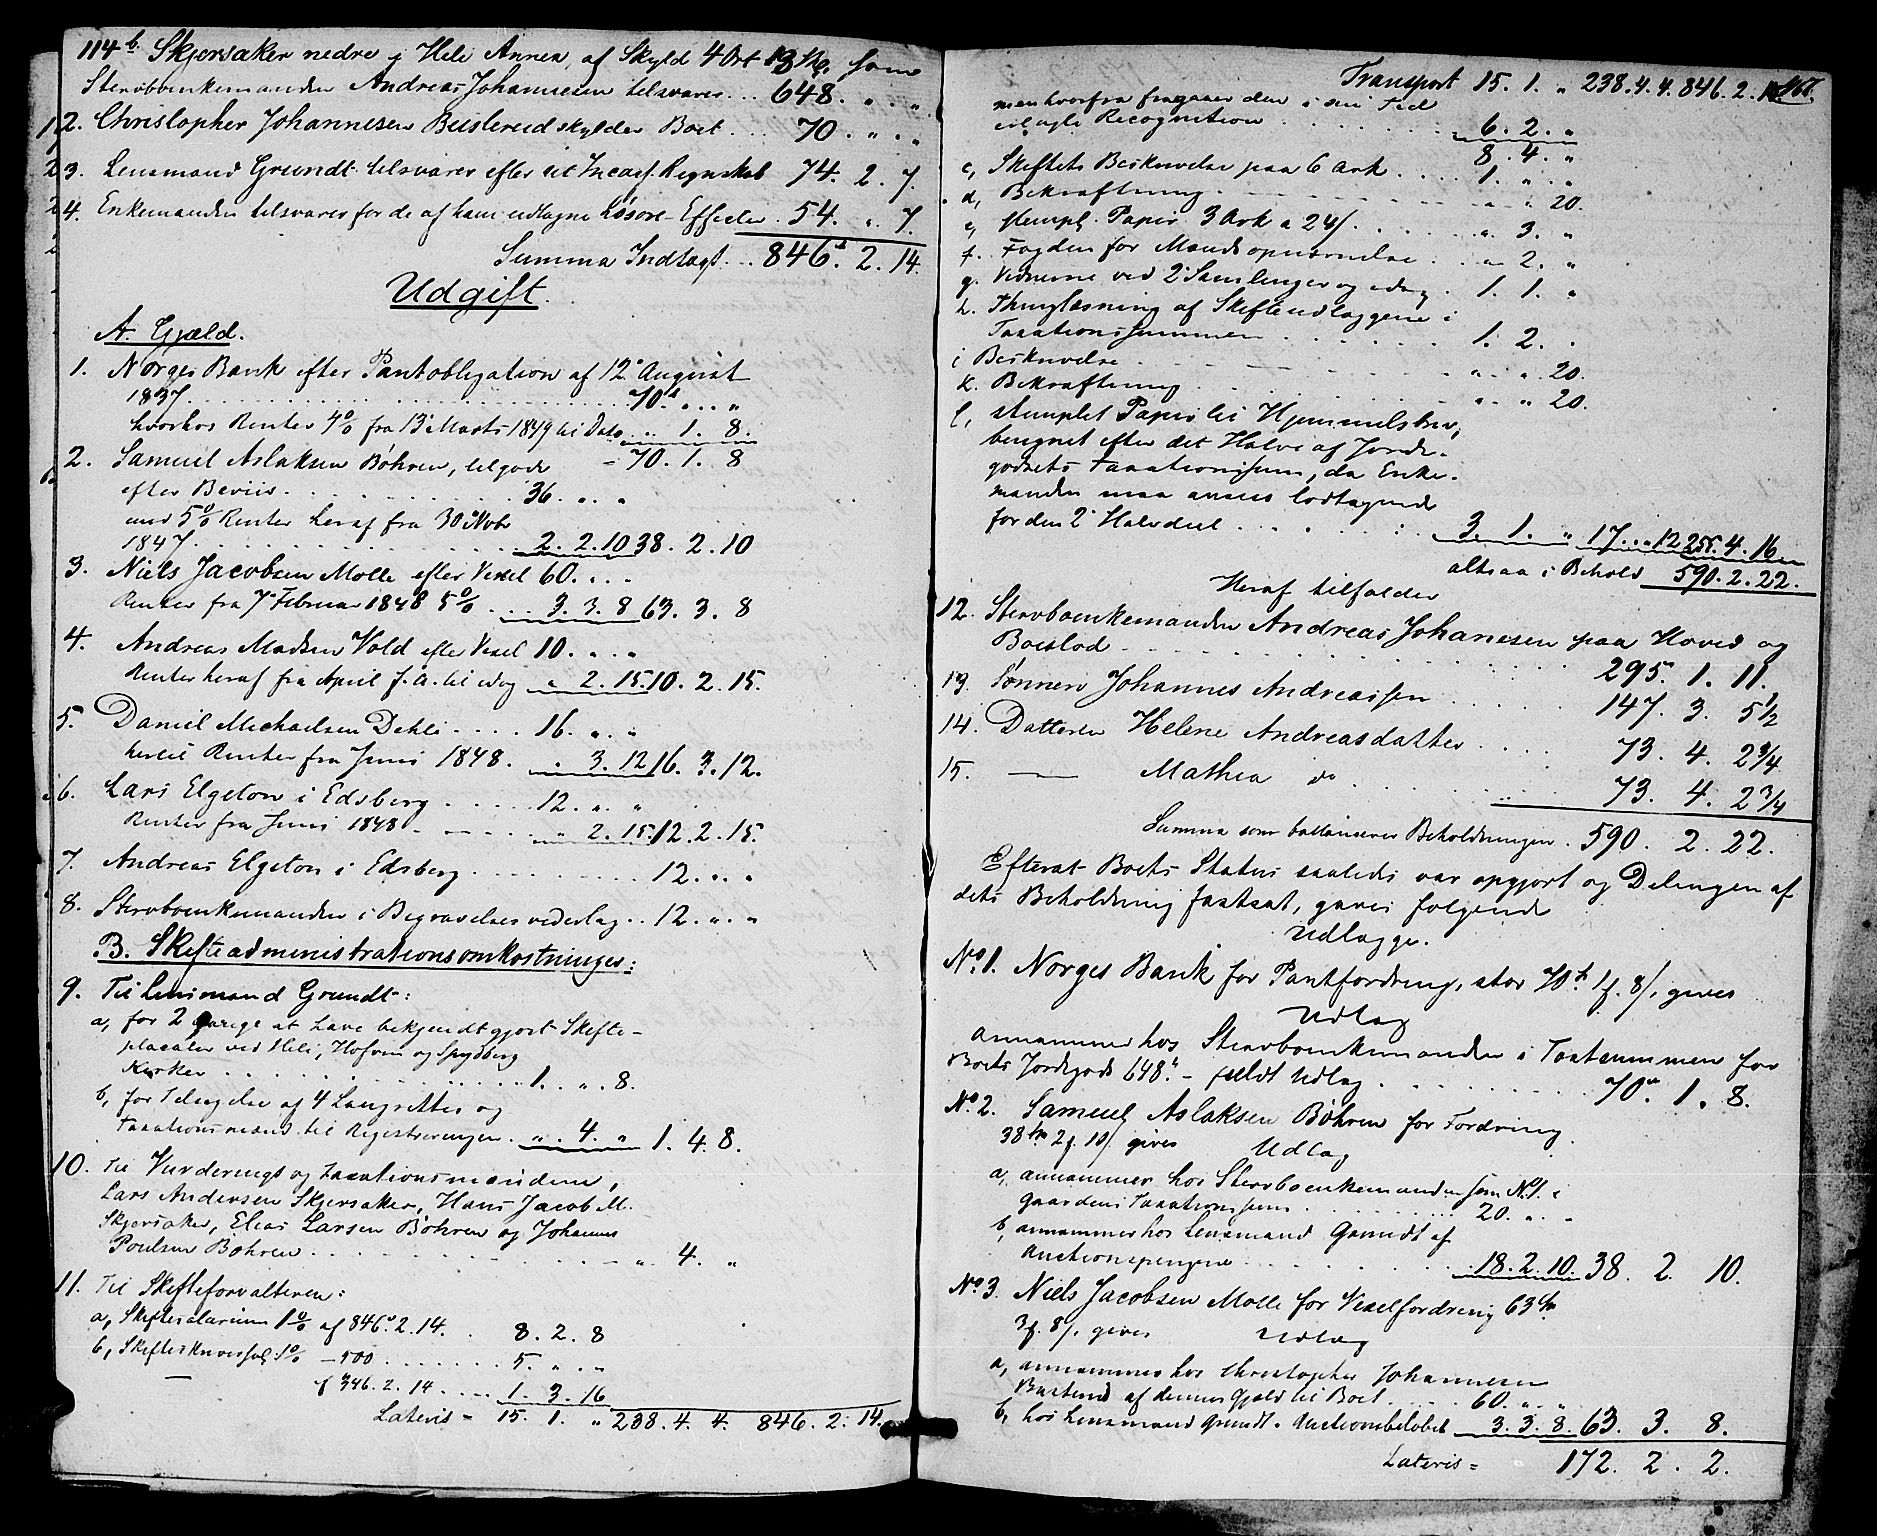 114 b. Skjørsaker nedre i Heli Annex, af Skyld 4 Ort 13 Sk. som
Stervboenkemanden Andreas Johannesen tilsvarer .. 648. „ . „
2. Christopher Johannesen Busterud skylder Boet ... 70. „ . „
3. Lensmand Grundt tilsvarer efter sit Incass. Regnskab 74. 2. 7.
4. Enkemanden tilsvarer for de af ham udtagne Løsøre Effecter . 54. „ 7.
Summa Indtægt ... 846. 2. 14.
Udgift.
A. Gjæld.
1. Norges Bank efter Pantobligation af 12 August
1837 ........ 70. „ . „
hvorhos Renter 4 % fra 13 Marts 1849 til Dato „ 1. 8.
= 70. 1. 8
2. Samuel Aslaksen Bøhren, tilgode
efter Beviis ........ 36. „ . „
med 5 % Renter heraf fra 30 Novbr
1847 ........ 2. 2. 10 38. 2. 10
3. Niels Jacobsen Molle efter Vexel 60. „ . „
Renter fra 7 Februar 1848 5 % ... 3. 3. 8 63. 3. 8
4. Andreas Madsen Vold efter Vexel 10. „ . „
Renter heraf fra April f. A. til idag „ 2. 15. 10. 2. 15.
5. Daniel Michaelsen Dehli .... 16. „ . „
hertil Renter fra Juni 1848. . „ 3. 12 16. 3. 12.
6. Lars Elgeton i Edsberg ..... 12. „ . „
Renter fra Juni 1848 ..... „ 2. 15. 12. 2. 15.
7. Andreas Elgeton i Edsberg ........ 12. „ . „
8. Stervboenkemanden i Begravelsesvederlag .. 12. „ . „
B. Skifteadministrationsomkostninger:
9. Til Lensmand Grundt:
a, for 2 Gange at have bekjendtgjort Skifte-
placater ved Heli, Hofvin og Spydberg
Kirker ........ 1. „ . 8.
b, for Tilsigelse af 4 Laugretter og
Taxationsmænd til Registreringen . „ . 4. „ 1. 4. 8.
10. Til Vurderings og Taxationsmændene,
Lars Andersen Skjørsaker, Hans Jacob M.
Skjørsaker, Elias Larsen Bøhren og Johannes
Poulsen Bøhren ........ „ . 4. „
11. Til Skifteforvalteren:
a, Skiftesalarium 1 % af 846. 2. 14. . 8. 2. 8
b, Skifteskriversal: 1 % - 500 ....... 5. „ . „
- af 346. 2. 14 ..... 1. 3. 16
Lateris = 15. 1. „ 238. 4. 4. 846. 2. 14.
Transport 15. 1. „ 238. 4. 4. 846. 2. 14. 167.
men hvorfra fragaaer den i sin Tid
erlagte Recognition ........ 6. 2. „
8. 4. „
c, Skiftets Beskrivelse paa 6 Ark .... 1. „ . „
d, Bekræftning ........ „ . „ 20.
e, stempl. Papir 3 Ark a 24 / ...... „ . 3. „
f. Fogden for Mændsopnævnelse ... „ 2. „
g. Vidnerne ved 2 Samlinger og idag . 1. 1. „
h. Thinglæsning af Skifteudlæggene i
Taxationssummen ....... 1. 2. „
i Beskrivelse ........ „ . „ 20.
k. Bekræftning ........ „ . „ 20.
l, stemplet Papir til Hjemmelsbrev,
beregnet efter det Halve af Jorde-
godsets Taxationssum, da Enke-
manden maa ansees lodtagende
for den 2 Halvdeel ....... 3. 1. „ 17. „ 12 255. 4. 16
altsaa i Behold 590. 2. 22.
Heraf tilfalder
12. Stervboenkemanden Andreas Johanesen paa Hoved og
Boeslod ........ 295. 1. 11.
13. Sønnen Johannes Andreassen ..... 147. 3. 5 1/2
14. Datteren Helene Andreasdatter .... 73. 4. 2 3/4
15. — Mathea do ........ 73. 4. 2 3/4
Summa som ballancerer Beholdningen . 590. 2. 22.
Efterat Boets Status saaledes var opgjort og Delingen af
dets Beholdning fastsat, gaves følgende
Udlægge.
No. 1. Norges Bank for Pantfordring, stor 70 1 f. 8 /, gives
Udlæg
annammer hos Stervboenkemanden i Taxtsummen for
Boets Jordegods 648. - fuldt Udlæg ....... 70. 1. 8.
No. 2. Samuel Aslaksen Bøhren for Fordring
38 2 f. 10 / gives Udlæg
a, annammer hos Stervboenkemanden som No. 1. i
Gaardens Taxationssum ........ 20. „ . „
b, annammer hos Lensmand Grundt af
Auctionspengene ........ 18. 2. 10. 38. 2. 10.
No. 3. Niels Jacobsen Molle for Vexelfordring 63
3 f. 8 /. gives Udlæg
a, annammer hos Christopher Johannesen
Busterud af dennes Gjæld til Boet .... 60. „ . „
b, hos Lensmand Grundt Auctionsbeløbet 3. 3. 8. 63. 3. 8.
Lateris = 172. 2. 2.